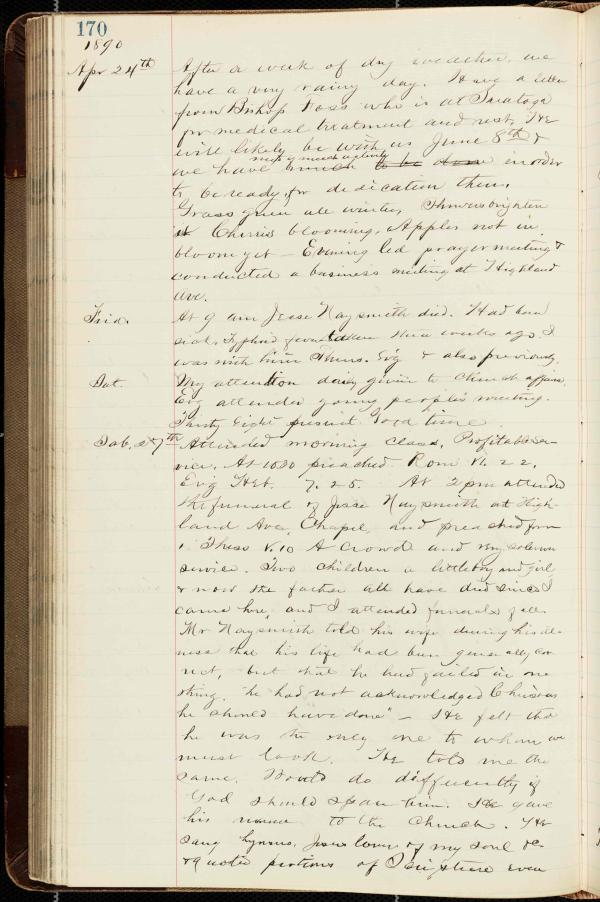 170
1890
Apr 24th After a week of dry weather, we
have a very rainy day. Have a letter
from Bishop Foss who is at Saratoga
for medical treatment and rest, He
will likely be with us June 8th &
much activity
we have much to be done in order
to be ready for dedication then.
Grass green all winter, Showers brighten
it Cherries blooming, Apples not in
bloom yet – Evening led prayer meeting &
conducted a business meeting at Highland
Ave.
Frid. At 9 am Jesse Naysmith died. Had been
sick, Typhoid fever taken three weeks ago. I
was with him Thurs. Ev'g & also previously.
Sat. My attention daily given to Church affairs
Evg attended young people's meeting.
Thirty Eight present Good time.
Sab. 27th Attended morning class, Profitable ser-
vice. At 1030 preached Rom VI. 22.
Evg Heb. 7. 25. At 2 pm attended
the funeral of Jesse Naysmith at High-
land Ave. Chapel, and preached from
1 Thess V. 10 A crowd and very solemn
service. Two children a little boy and girl
& now the father all have died since I
came here, and I attended funerals of all.
Mr Naysmith told his wife during his ill-
ness that his life had been generally cor-
rect, but that he had failed in one
thing, "he had not acknowledged Christ as
he should have done" – He felt that
he was the only one to whom we
must look. He told me the
same. Would do differently if
God should spare him. He gave
his name to the Church. He
sang hymns, Jesus lover of my soul &c
& quoted portions of Scripture even